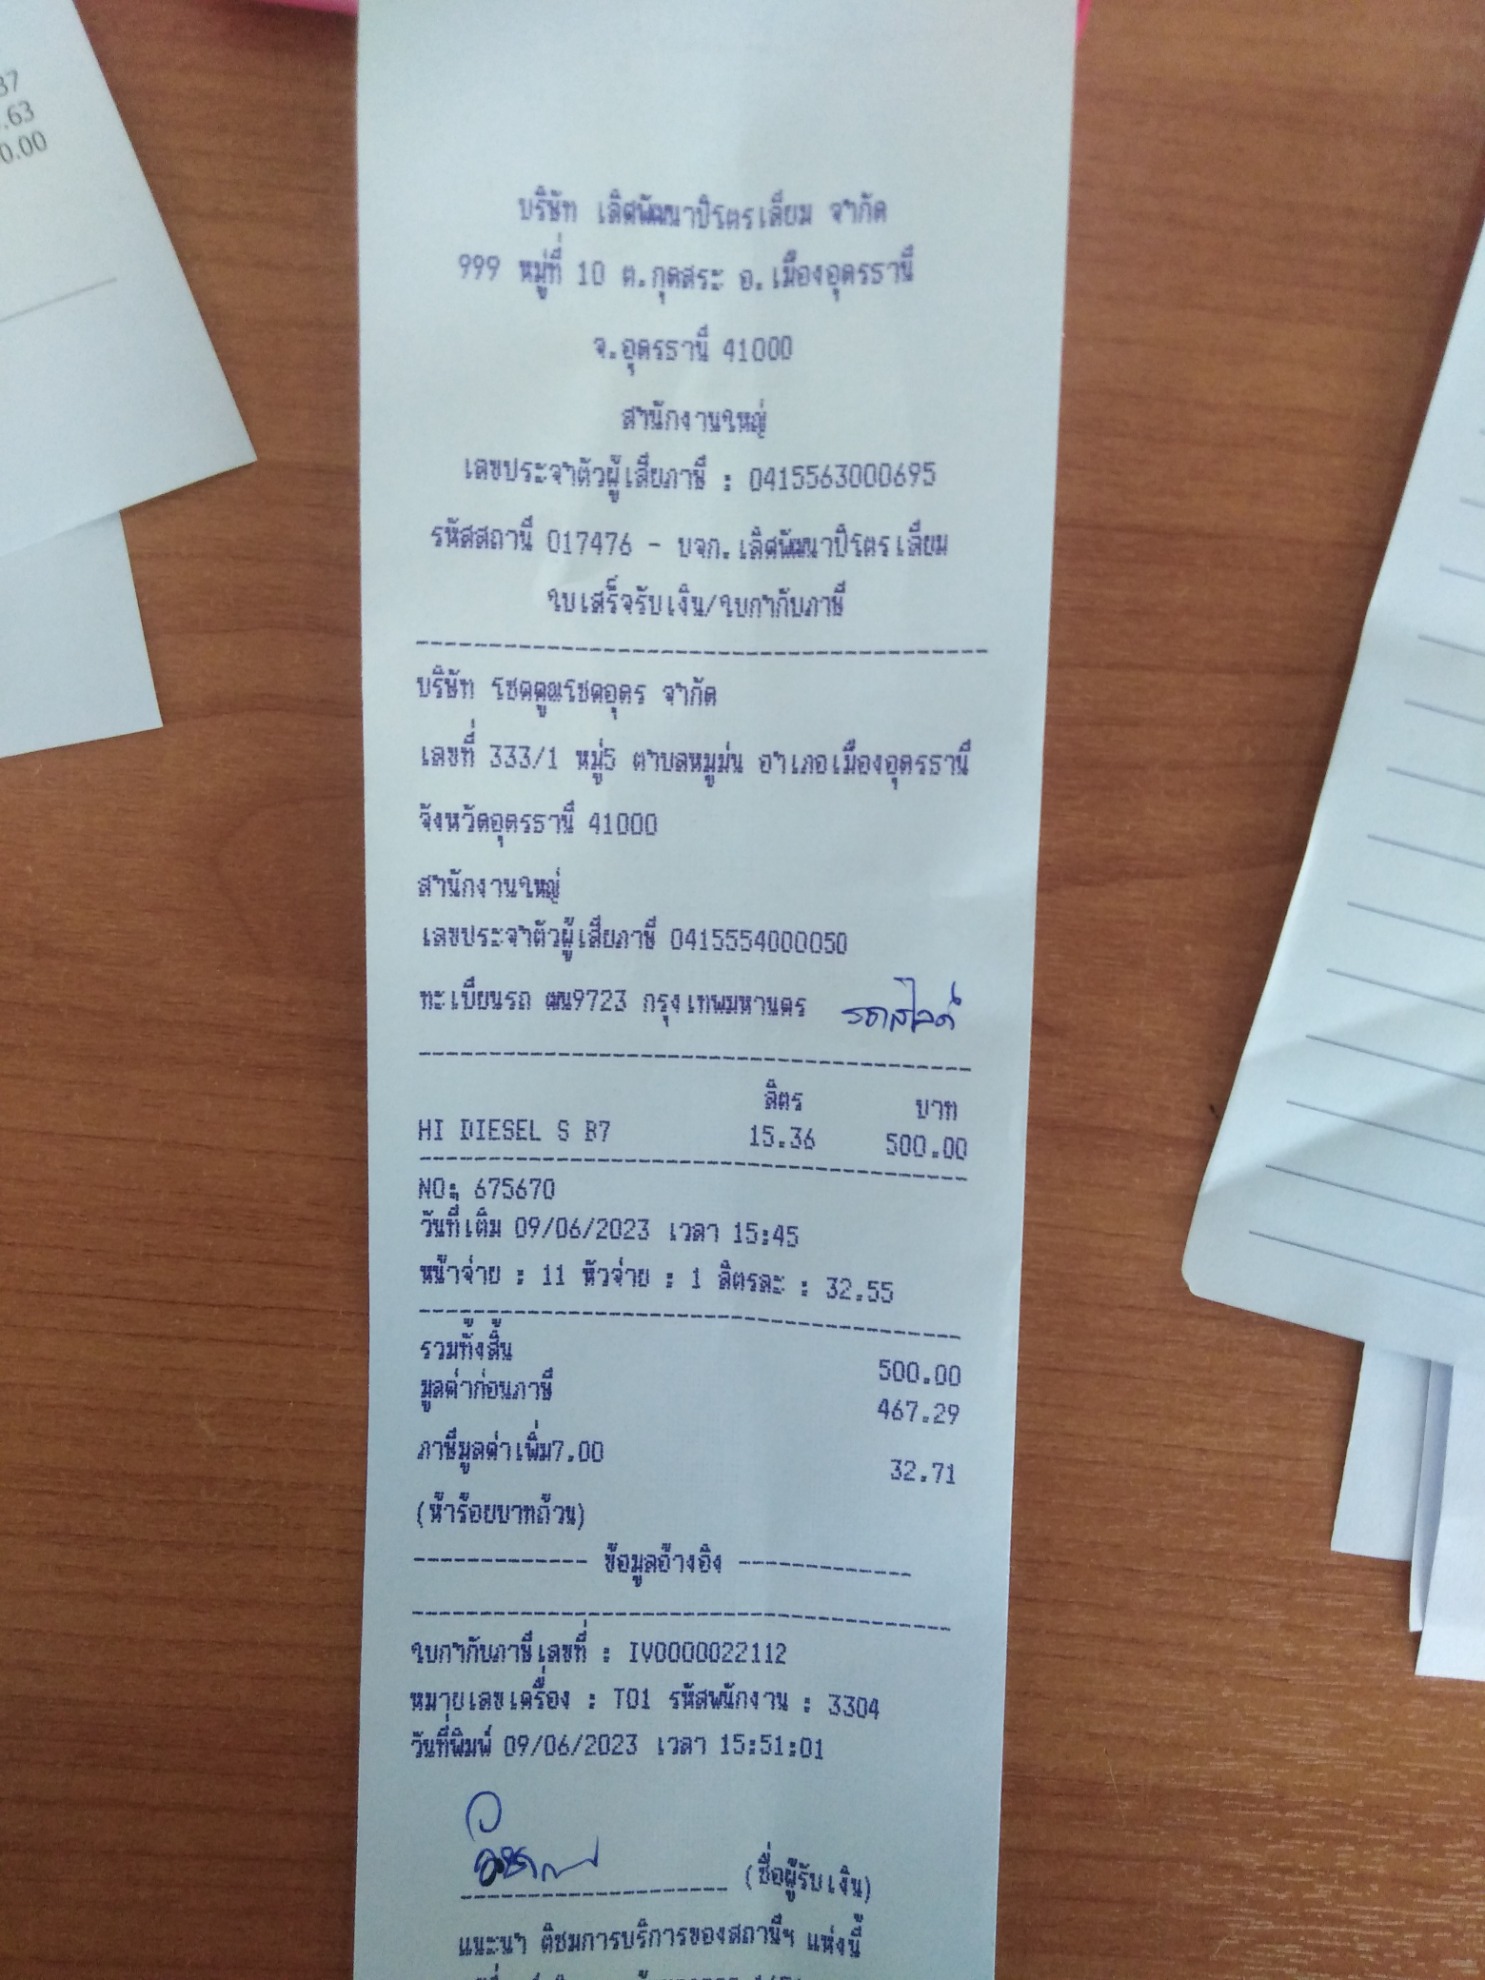 37
.63
0.00
บริษัท เลิศพัฒนาปิโตรเลียม จำกัด
999 หมู่ที่ 10 ต.กุดสระ อ.เมืองอุดรธานี
จ.อุดรธานี 41000
สำนักงานใหญ่
เลขประจำตัวผู้เสียภาษี : 0415563000695
รหัสสถานี 017476 - บจก.เลิศพัฒนาปิโตรเลียม
ใบเสร็จรับเงิน/ใบกำกับภาษี
บริษัท โชคคูณโชคอุดร จำกัด
เลขที่ 333/1 หมู่5 ตำบลหมูม่น อำเภอเมืองอุดรธานี
จังหวัดอุดรธานี 41000
สำนักงานใหญ่
เลขประจำตัวผู้เสียภาษี 0415554000050
ทะเบียนรถ ฒน9723 กรุงเทพมหานคร รถสไลด์
ลิตร บาท
HI DIESEL S B7 15.36 500.00
NO: 675670
วันที่เติม 09/06/2023 เวลา 15:45
หน้าจ่าย : 11 หัวจ่าย : 1 ลิตรละ : 32.55
รวมทั้งสิ้น 500.00
มูลค่าก่อนภาษี 467.29
ภาษีมูลค่าเพิ่ม7.00 32.71
(ห้าร้อยบาทถ้วน)
------------- ข้อมูลอ้างอิง -------------
ใบกำกับภาษีเลขที่ : IV0000022112
หมายเลขเครื่อง : T01 รหัสพนักงาน : 3304
วันที่พิมพ์ 09/06/2023 เวลา 15:51:01
(ชื่อผู้รับเงิน)
แนะนำ ติชมการบริการของสถานีฯ แห่งนี้